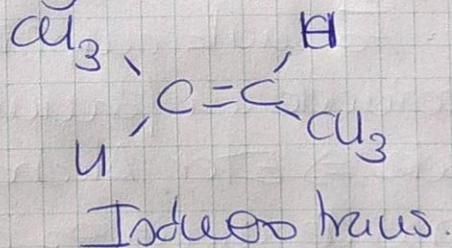 CH3 H
C=C
H CH3
Isómero trans.